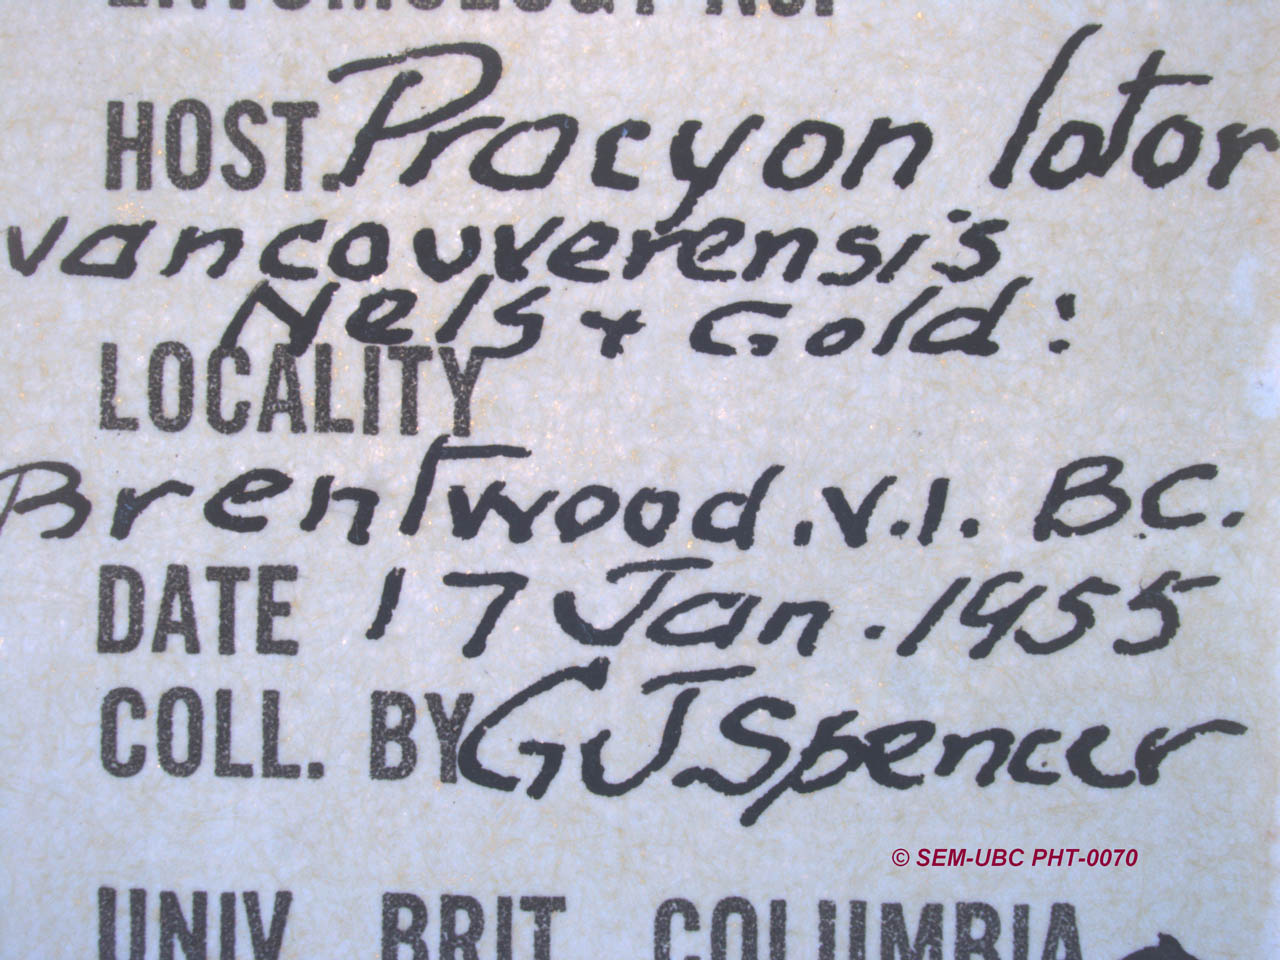 ENTOMOLOGY NO.
HOST. Procyon lotor
vancouverensis
Nels & Gold:
LOCALITY
Brentwood. V.I. BC.
DATE 17 Jan. 1955
COLL. BY G J Spencer
© SEM-UBC PHT-0070
UNIV BRIT COLUMBIA